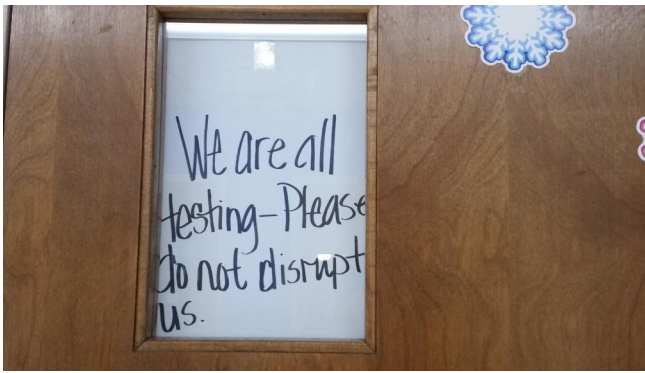 We are all
testing-Please
do not disrupt
us.